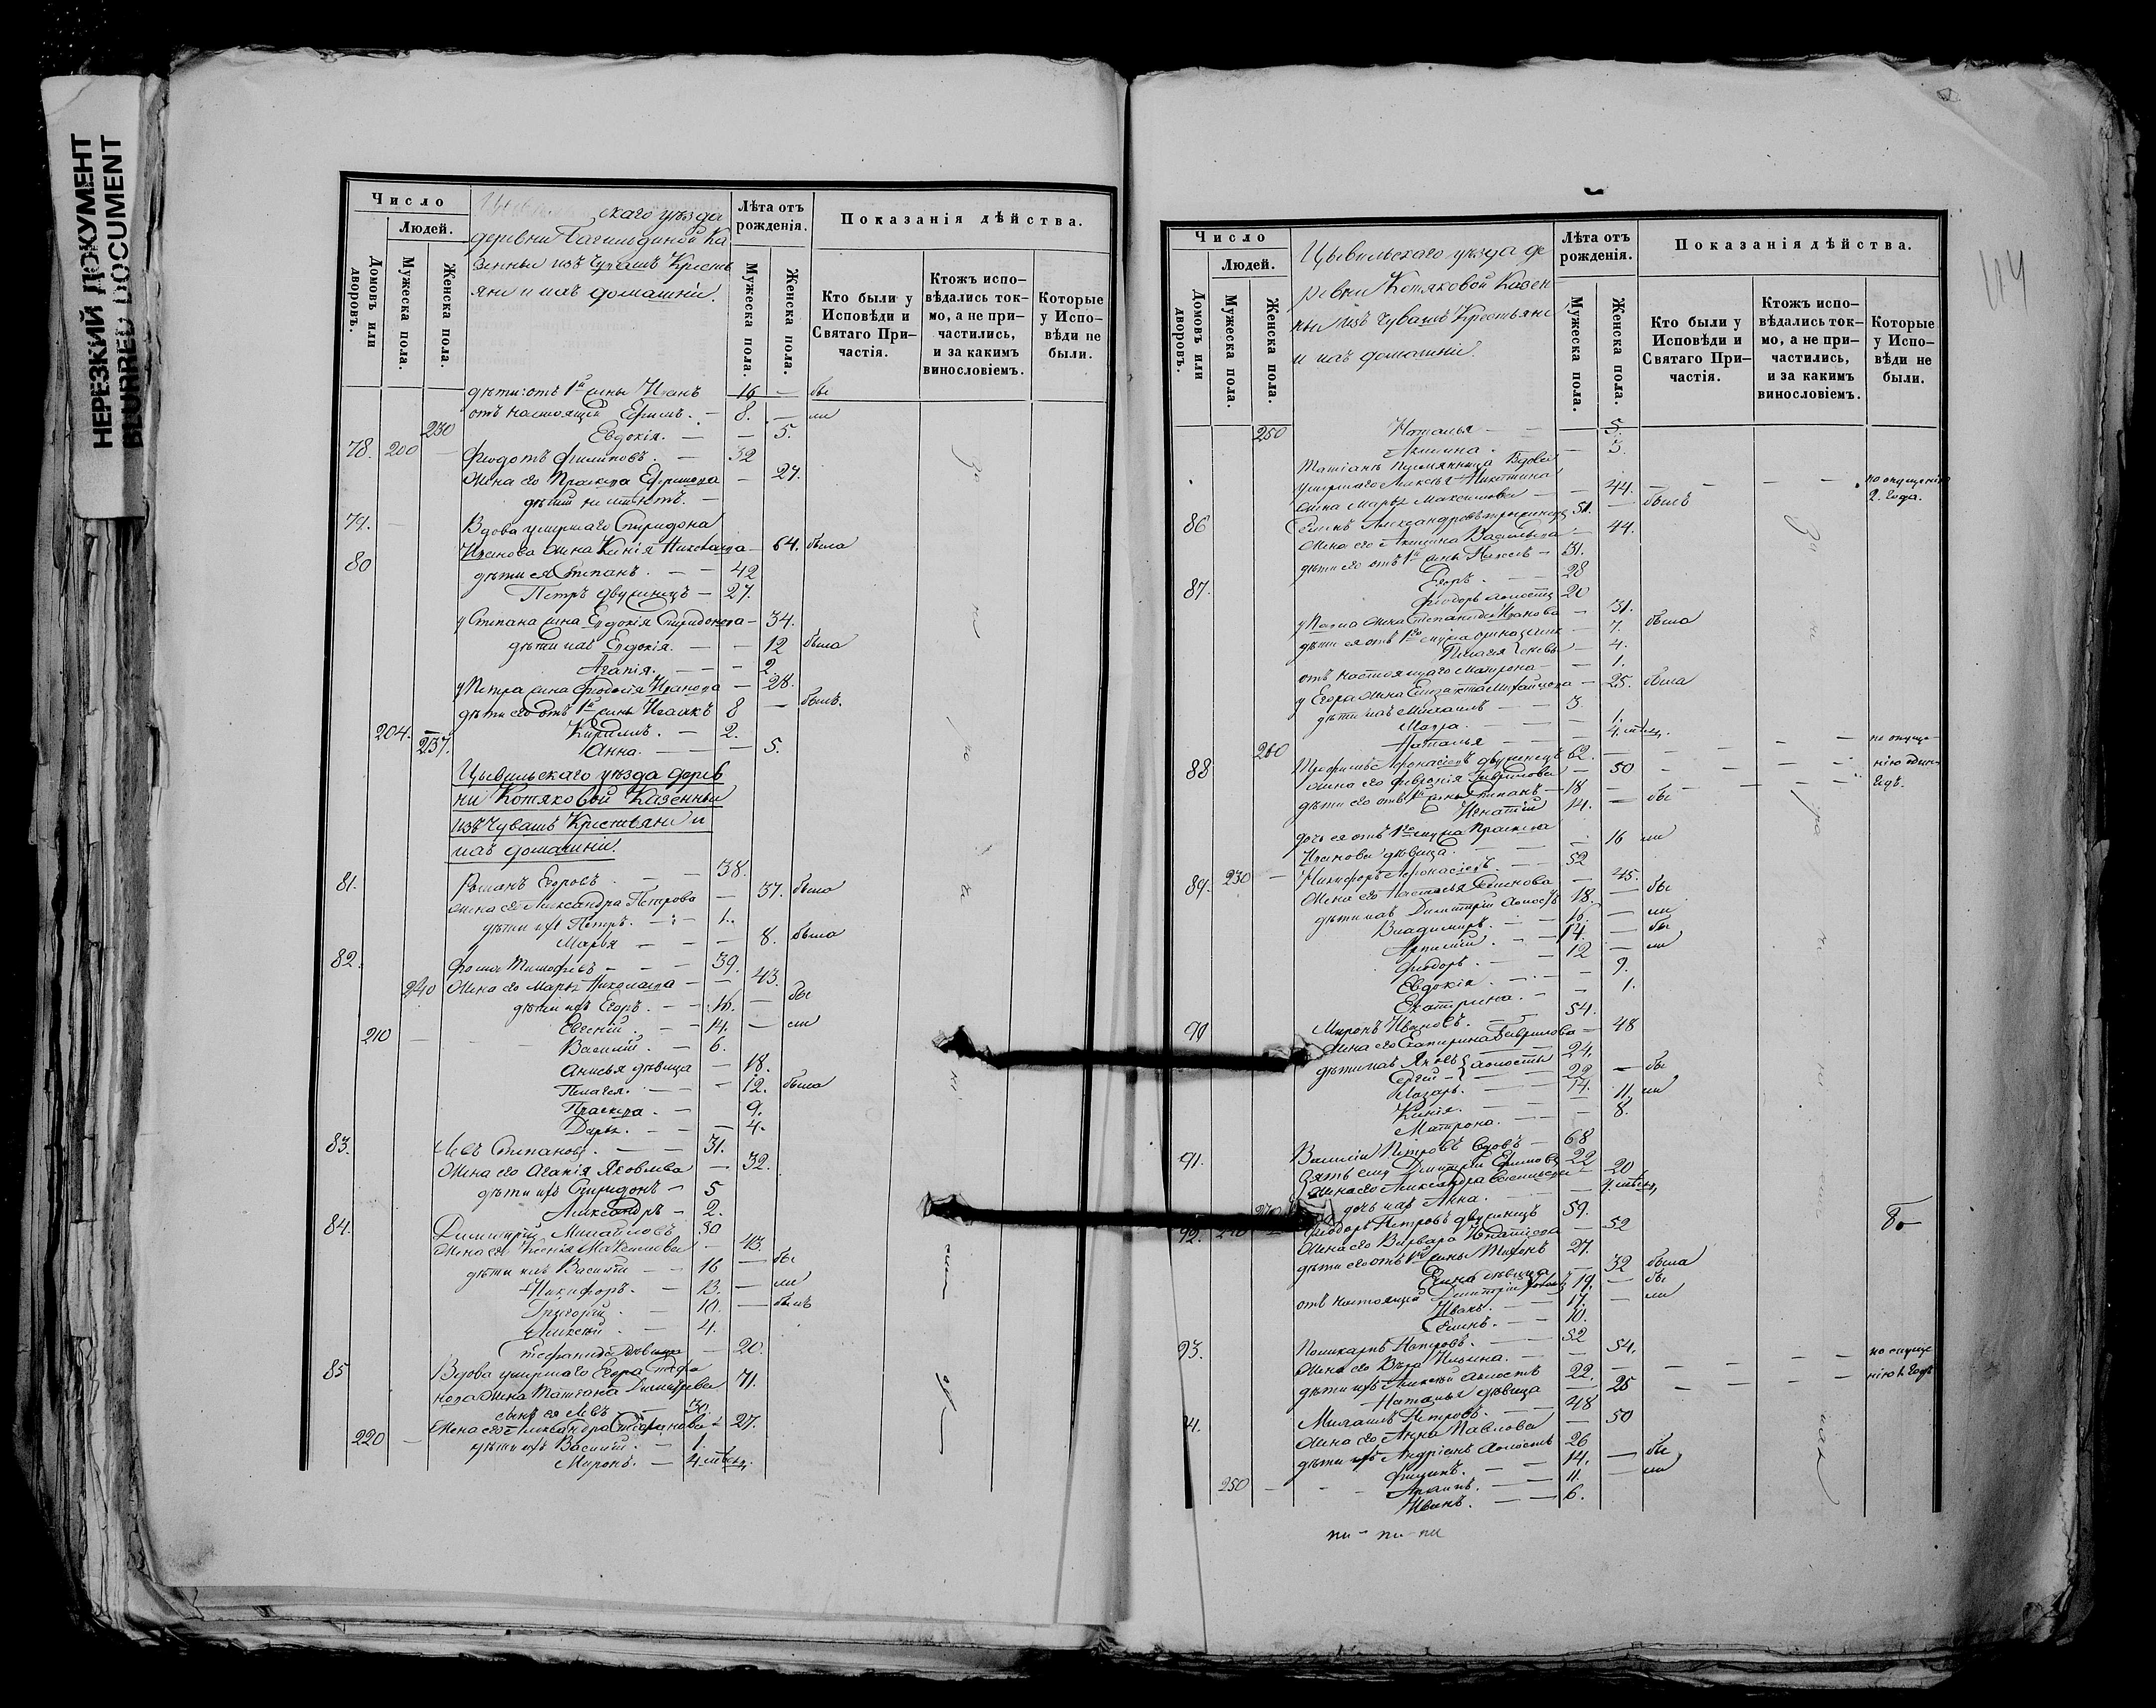 НЕРЕЗКИЙ ДОКУМЕНТ
BLURRED DOCUMENT
Число
Людей.
Домовъ или дворовъ.
Мужеска пола.
Женска пола.
скаго уѣзда
деревни Ка
зенныи изъ Чувашъ Кресть
яни и ихъ домашніи.
Лѣта отъ рожденія.
Мужеска пола.
Женска пола.
Показанія дѣйства.
Кто были у Исповѣди и Святаго Причастія.
Ктожъ исповѣдались токмо, а не причастились, и за какимъ винословіемъ.
Которые у Исповѣди не были.
дѣти: отъ 1й жены Иванъ 16 — бы
отъ настоящей Ефимъ. — 8. — ли
230 Евдокія. — — 5.
78. 200 — Ѳеодотъ Филиповъ. — 32
Жена его — 27.
дѣтей не имѣютъ. —
79. Вдова умершаго Спиридона
Иванова жена Ксенія — 64. была
80 дѣти ея Степанъ. — — 42
Петръ двуженецъ — 27.
у Степана жена Евдокія Спиридонова — 34.
дѣти ихъ Евдокія. — — 12 была
Агапія. — — — 2.
у Петра жена Ѳеодосія Иванова — 28.
дѣти его отъ 1й жены Исаакъ 8 — былъ.
204. Кириллъ. — 2.
237. Анна. — — — 5.
Цывильскаго уѣзда дерев
ни Котяковой Казенныи
изъ Чувашъ Крестьяни и
ихъ домашніи.
81. Романъ Егоровъ. — — 38.
жена его Александра Петрова — 37. была
дѣти ихъ Петръ. — 1.
Марья — — — 8. была
82. Ѳома Тимофеевъ — — — 39.
240 Жена его Марѳа Николаева — — 43.
дѣти ихъ Егоръ. — — 16. — бы
Евгеній. — — 14. — ли
210 — Василій. — 6.
Анисья дѣвица — 18.
Пелагея. — — 12. была
Праскева. — 9.
Дарья. — — — 4.
83. Левъ Степановъ. — — 31.
Жена его Агапія Яковлева — 32.
дѣти ихъ Спиридонъ — 5
Александръ — 2.
84. Димитрій Михайловъ 50
Жена его Ксенья Максимова — 43.
дѣти ихъ Василій — — 16 — бы
Никифоръ. — 13. — ли
Григорій. — 10. — былъ
Алексѣй. — 4.
Стефанида дѣвица — 20.
85 Вдова умершаго Егора Стефа
нова жена Татіана Димитріева 71.
сынъ ея Левъ — 30.
Жена его Александра — 27.
220 — дѣти ихъ Василій. — 1.
Миронъ. — 4. мѣсяц.
Число
Людей.
Домовъ или дворовъ.
Мужеска пола.
Женска пола.
Цывильскаго уѣзда де
ревни Котяковой Казен
ныи изъ Чувашъ Крестьяни
и ихъ домашніи.
Лѣта отъ рожденія.
Мужеска пола.
Женска пола.
Показанія дѣйства.
Кто были у Исповѣди и Святаго Причастія.
Ктожъ исповѣдались токмо, а не причастились, и за какимъ винословіемъ.
Которые у Исповѣди не были.
250 Наталья — — 5.
Акилина. — — 3.
Татіанѣ племянница Вдова
умершаго Алексѣя Никитина
жена Марѳа Максимова — — 44. — — — — по опущенію 2. года.
86 Семенъ Александровъ 51. — былъ
Жена его Акилина Васильева — 44.
дѣти его отъ 1й жены Павелъ — 31.
87. Егоръ. — — 28
Ѳеодоръ холостъ 20
у Павла жена Степанида Иванова — 31. была
дѣти ея отъ 1го мужа — 7.
Пелагія — 4.
отъ настоящаго Матрона — — 1.
у Егора жена Михайлова — 25. была
дѣти ихъ Михаилъ — — 3.
Мавра. — — — 1.
260 Наталья — — — 4. мѣсяц.
88 Афонасіевъ двуженецъ 62. — — — — по опуще
Жена его Февронія Гаврилова — 50 — — — нію одинъ
дѣти его отъ 1й жены Степанъ — 18 — — — — годъ.
Игнатій 14. — бы
дочь ея отъ 1го мужа Праскева
Иванова дѣвица. — — 16 ли
89. 230 — Никифоръ Афонасіевъ — — 52
Жена его Настасья Семенова — 45.
дѣти ихъ Димитрій холостъ 18. — бы
Владимиръ. — — 16. — ли
— 14. — бы
Ѳеодоръ. — — 12 — ли
Евдокія. — — — 9.
Екатерина. — — 1.
90 Миронъ Ивановъ. — — 54.
Жена его Екатерина Гаврилова — 48
дѣти ихъ Яковъ 24.
Сергій — холосты 22 — бы
Лазарь. — 14.
Ксенія. — — — 11. ли
Матрона. — — 8.
91. Василій Петровъ вдовъ — 68
Зять ему Димитрій Ефимовъ 22
Жена его Александра Васильева — 20
дочь ихъ Анна. — — 4. мѣсяц.
92. Ѳеодоръ Петровъ двуженецъ 59.
Жена его Варвара Игнатіева — 52
дѣти его отъ 1й жены Тихонъ 27.
Елена дѣвица — 32 была
отъ настоящей Димитрій 19. — бы
Иванъ. — — 17. — ли
Семенъ. — — 10.
93. Поликарпъ Петровъ. — — 52
Жена его Вѣра Ильина. — — 54. — — по опуще
дѣти ихъ Алексѣй холостъ 22. — — — — нію 1. годъ
Наталья дѣвица — 25 — — —
4. Михаилъ Петровъ. — — 48
Жена его Анна Павлова — 50
дѣти ихъ Андріанъ холостъ 26
Филипъ. — — 14. — бы
250 — — Архипъ. — — 11. — ли
Иванъ. — — 6.